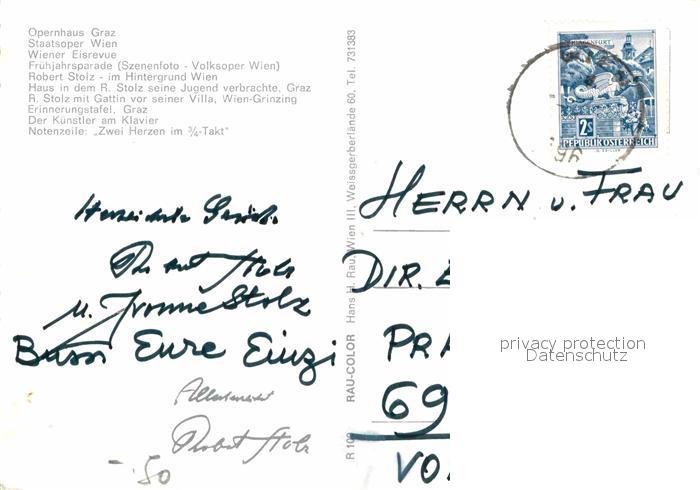 Opernhaus Graz
Staatsoper Wien
Wiener Eisrevue
Frühjahrsparade (Szenenfoto - Volksoper Wien)
Robert Stolz - im Hintergrund Wien
Haus in dem R. Stolz seine Jugend verbrachte, Graz
R. Stolz mit Gattin vor seiner Villa, Wien-Grinzing
Erinnerungstafel, Graz
Der Künstler am Klavier
Notenzeile: „Zwei Herzen im ¾-Takt"
Robert Stolz
u. Yvonne Stolz
Bussi Eure Einzi
Robert Stolz
-.50
R 109 RAU-COLOR Hans H. Rau, Wien III, Weissgerberlände 60, Tel. 731383
KLAGENFURT
2S
REPUBLIK ÖSTERREICH
HERRN u. FRAU
DIR.
PRA
69
VO
privacy protection
Datenschutz